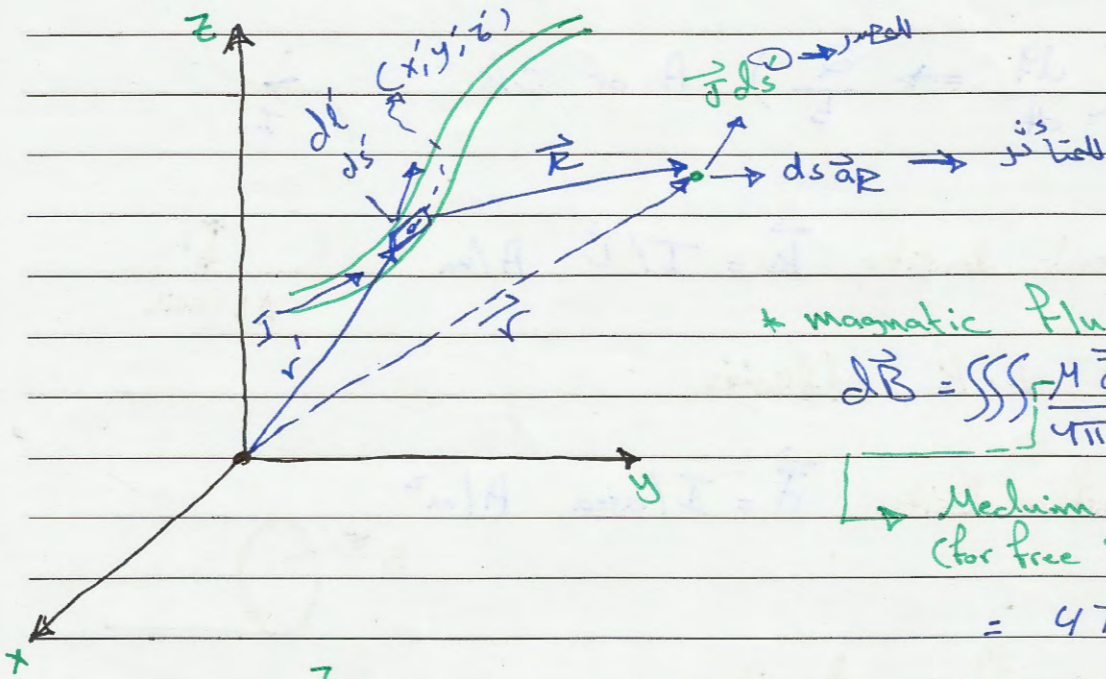 z
(x', y', z')
dl'
ds'
J ds' → المصدر
R
ds aR →
J
r'
r
* magnatic flu
dB = ∭ μ
4π
y
→ Meduim
(for free
= 4π
x
z